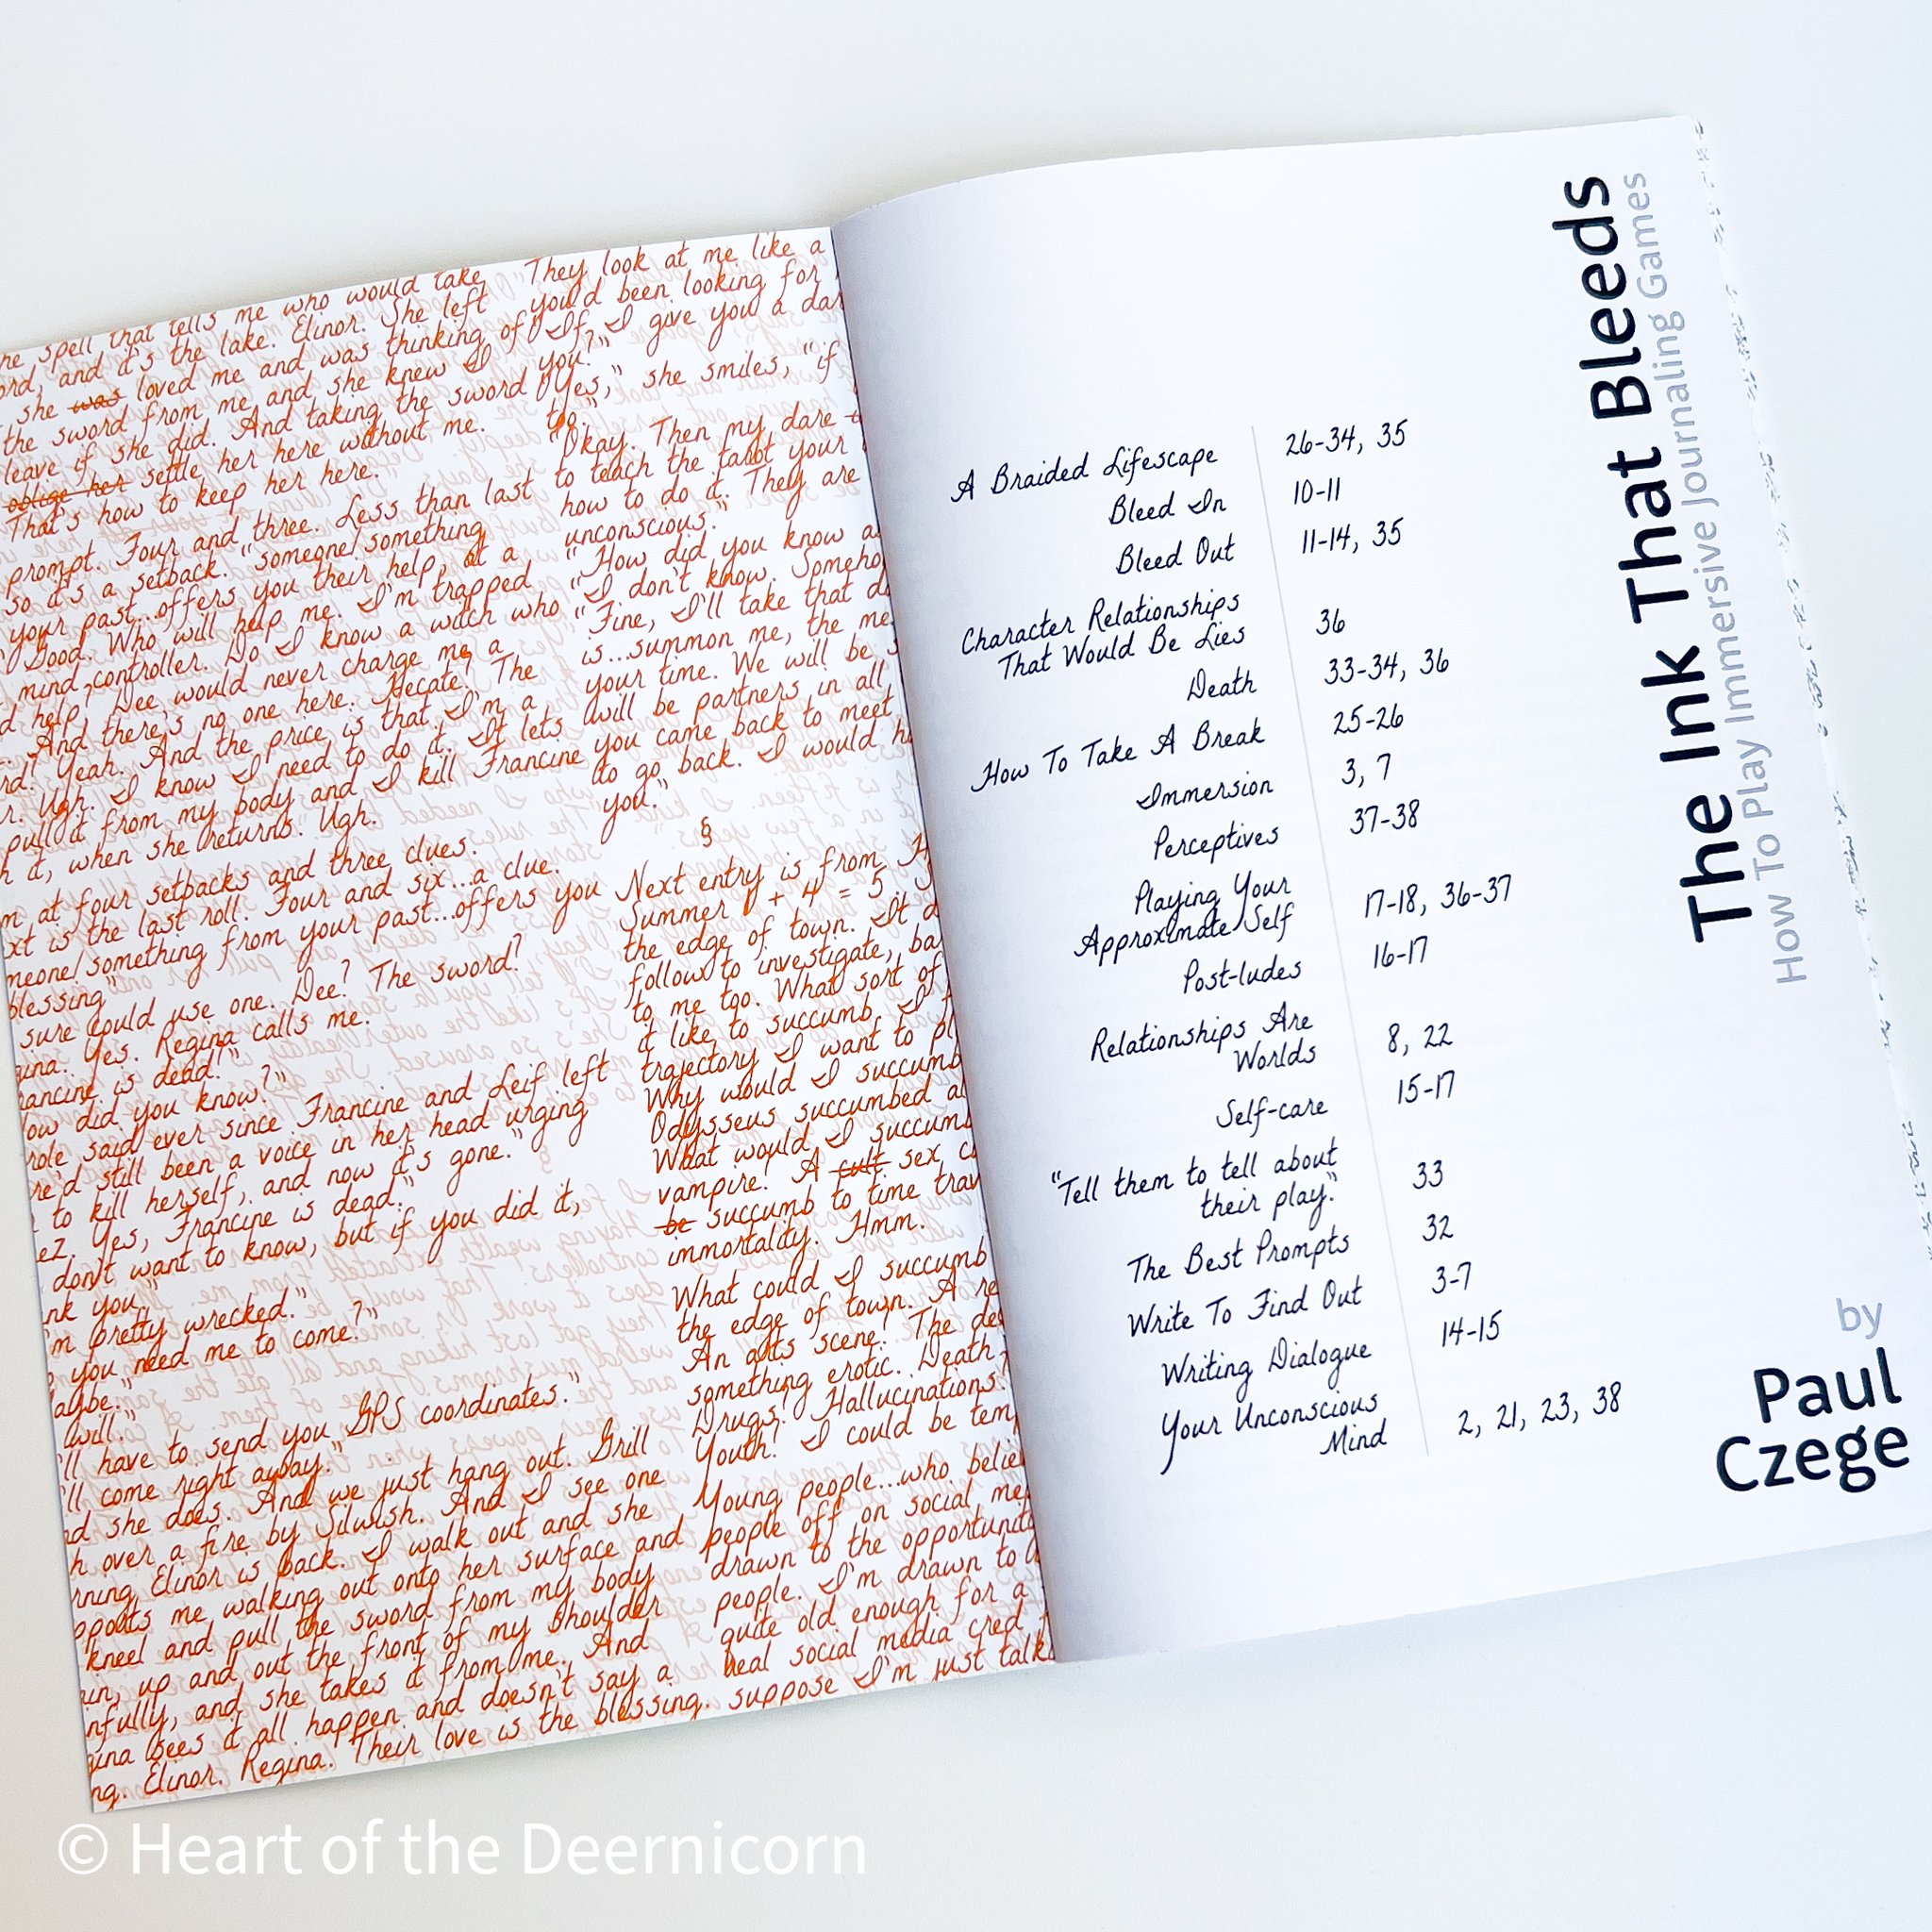 he spell that tells me who would take
ord, and it's the lake. Elinor. She left
she was loved me and was thinking of
the sword from me and she knew I
leave if she did. And taking the sword
oblige her settle her here without me.
That's how to keep her here.
prompt. Four and three. Less than last
so it's a setback. "someone/something
your past...offers you their help, at a
Good. Who will help me. I'm trapped
mind controller. Do I know a witch who
d help? Dee would never charge me a
And there's no one here. Hecate? The
rd! Yeah. And the price is that I'm a
r. Ugh. I know I need to do it. It lets
pull it from my body and I kill Francine
h it, when she returns. Ugh.
m at four setbacks and three clues.
xt is the last roll. Four and six...a clue.
meone/something from your past...offers you
blessing"
sure could use one. Dee? The sword?
gina. Yes. Regina calls me.
rancine is dead!"
ow did you know?"
role said ever since Francine and Leif left
re'd still been a voice in her head urging
to kill herself, and now it's gone."
ez. Yes, Francine is dead."
don't want to know, but if you did it,
nk you."
m pretty wrecked."
you need me to come?"
aybe."
will."
'll have to send you GPS coordinates."
'll come right away."
nd she does. And we just hang out. Grill
h over a fire by Silulsh. And I see one
rning Elinor is back. I walk out and she
pports me walking out onto her surface and
kneel and pull the sword from my body
un, up and out the front of my shoulder
nfully, and she takes it from me. And
gina sees it all happen and doesn't say a
ng. Elinor. Regina. Their love is the blessing.
They look at me like a
you'd been looking for
"If I give you a dar
you?"
"Yes," she smiles, "if
too."
"Okay. Then my dare
to teach the tarot your
how to do it. They are
unconscious."
"How did you know a
"I don't know. Someho
"Fine, I'll take that d
is...summon me, the me
your time. We will be
will be partners in all
you came back to meet
to go back. I would h
you."
§
Next entry is from H
Summer 1 + 4 = 5.
the edge of town. It d
follow to investigate, ba
to me too. What sort of
it like to succumb. I
trajectory I want to pl
Why would I succumb
Odysseus succumbed a
What would I succum
vampire! A cult sex c
be succumb to time trav
immortality. Hmm.
What could I succumb
the edge of town. A re
An arts scene! The de
something erotic. Death
Drugs! Hallucinations.
Youth! I could be tem
Young people...who belie
people off on social me
drawn to the opportunit
people. I'm drawn to
quite old enough for a
heal social media cred
suppose I'm just talk
A Braided Lifescape 26-34, 35
Bleed In 10-11
Bleed Out 11-14, 35
Character Relationships
That Would Be Lies 36
Death 33-34, 36
How To Take A Break 25-26
Immersion 3, 7
Perceptives 37-38
Playing Your
Approximate Self 17-18, 36-37
Post-ludes 16-17
Relationships Are
Worlds 8, 22
Self-care 15-17
"Tell them to tell about
their play." 33
The Best Prompts 32
Write To Find Out 3-7
Writing Dialogue 14-15
Your Unconscious
Mind 2, 21, 23, 38
The Ink That Bleeds
How To Play Immersive Journaling Games
by
Paul
Czege
© Heart of the Deernicorn